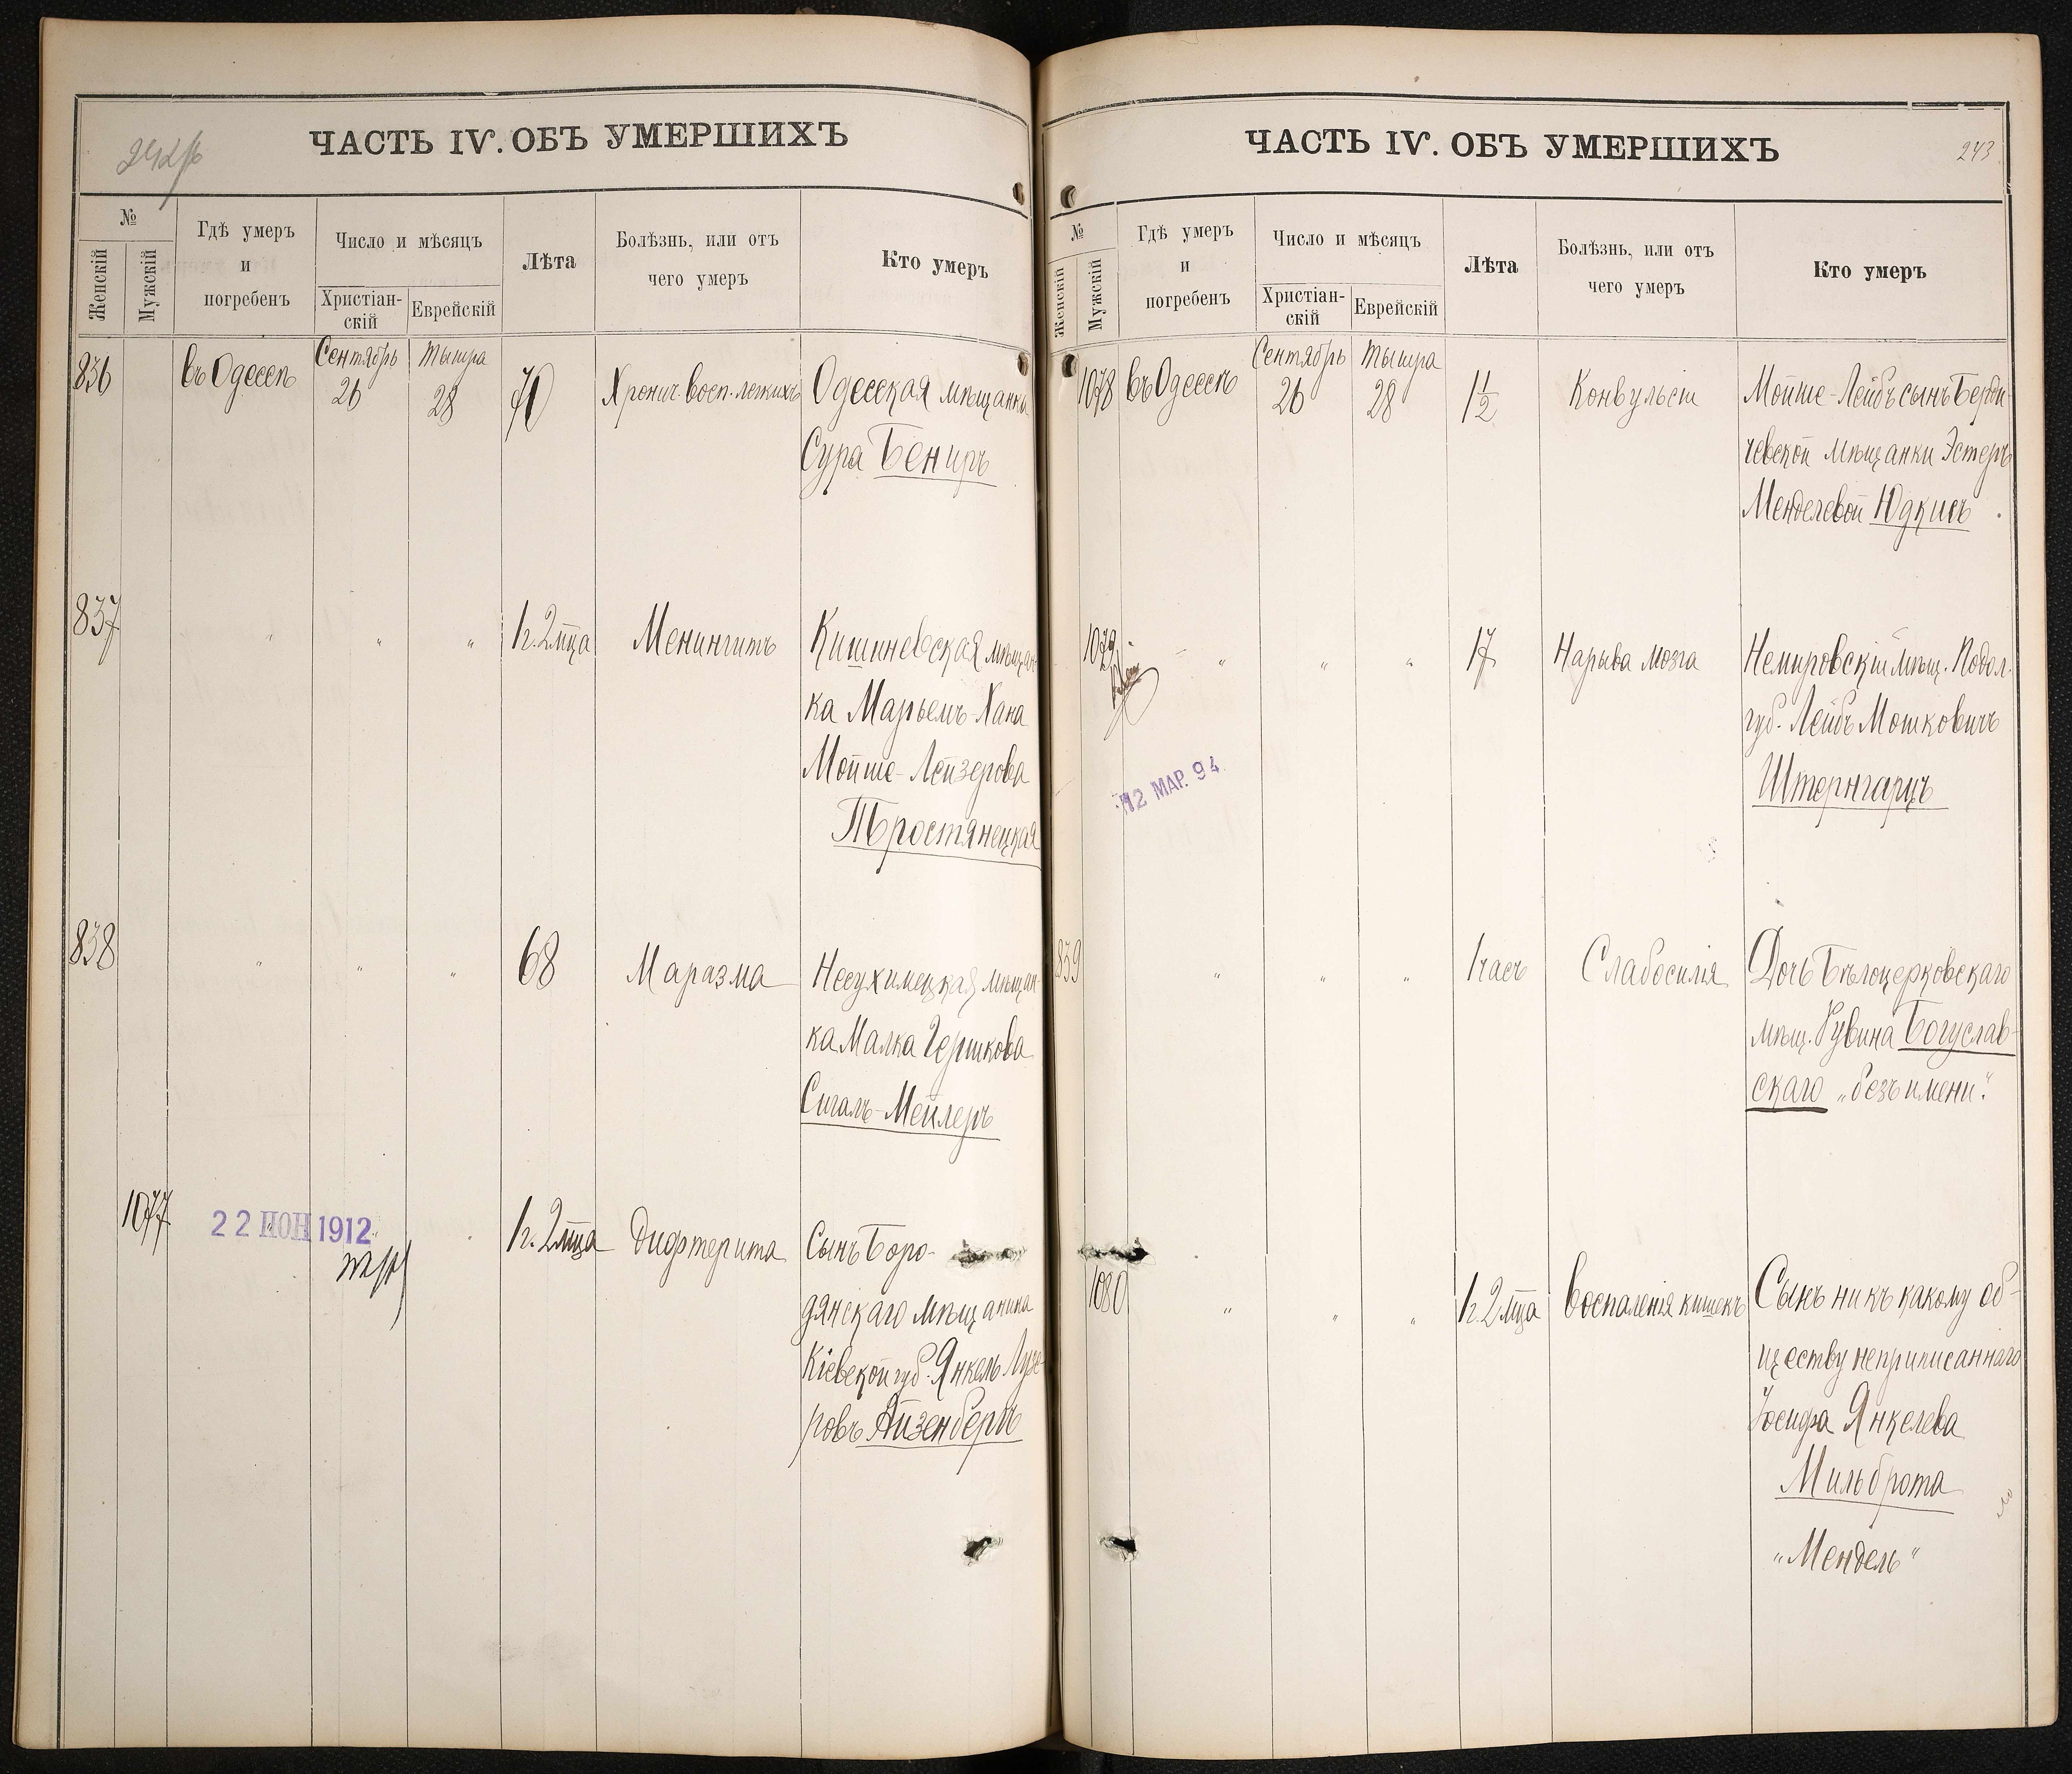 242
ЧАСТЬ IV. ОБЪ УМЕРШИХЪ
№
Женскій
Мужскій
Гдѣ умеръ
и
погребенъ
Число и мѣсяцъ
Христіан-
скій
Еврейскій
Лѣта
Болѣзнь, или отъ
чего умеръ
Кто умеръ
836
въ Одессѣ
Сентябрь
26
Тышра
28
70
Хронич. восп. легкихъ
Одесская мѣщанка
Сура Бениръ
837
" " "
1г. 2мца
Менингитъ
Кишиневская мѣщан-
ка Марьемъ-Хана
Мойше-Лейзерова
Тростянецкая
838
" " "
68
Маразма
Несухимецкая мѣщан-
ка Малка Гершкова
Сигалъ-Мейлеръ
1077
22 ІЮН 1912
1г. 2мца
Дифтерита
Сынъ Боро-
дянскаго мѣщанина
Кіевской губ. Янкель Лузе-
ровъ Айзенбергъ
ЧАСТЬ IV. ОБЪ УМЕРШИХЪ
243
№
Женскій
Мужскій
Гдѣ умеръ
и
погребенъ
Число и мѣсяцъ
Христіан-
скій
Еврейскій
Лѣта
Болѣзнь, или отъ
чего умеръ
Кто умеръ
1078
въ Одессѣ
Сентябрь
26
Тышра
28
1 1/2
Конвульсіи
Мойше-Лейбъ сынъ Берди-
чевской мѣщанки Эстеръ
Менделевой Юдкисъ
1079
" " "
17
Нарыва мозга
Немировскій мѣщ. Подол.
губ. Лейбъ Мошковичъ
Штернгарцъ
12 МАР. 94
839
" " "
1 часъ
Слабосилія
Дочь Бѣлоцерковскаго
мѣщ. Рувина Богуслав-
скаго „безъ имени"
1080
" " "
1г. 2мца
Воспаленія кишекъ
Сынъ ни къ какому об-
ществу неприписаннаго
Іосифа Янкелева
Мильброта
„Мендель"